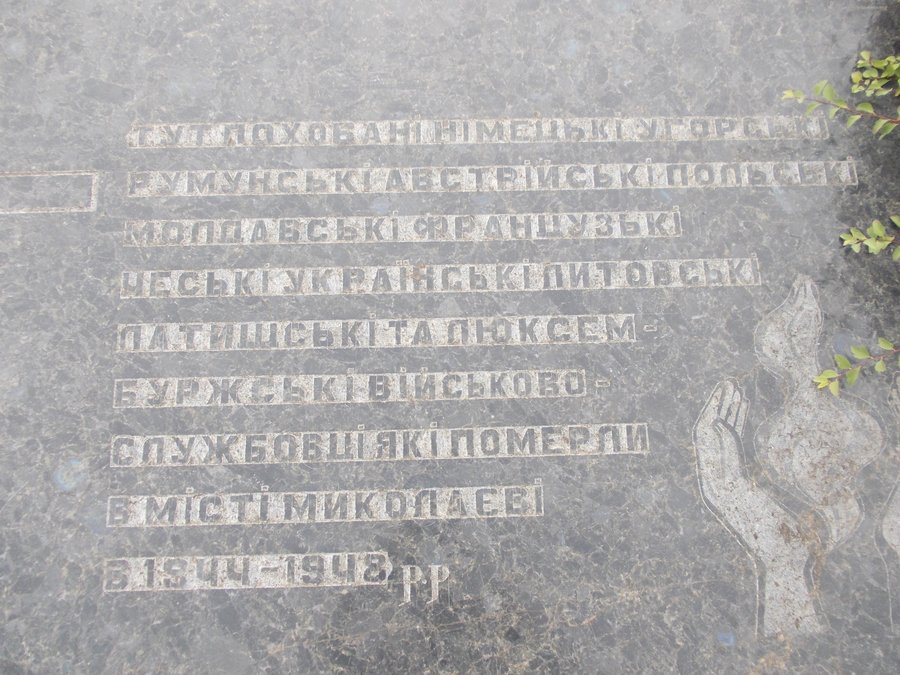 ТУТ ПОХОВАНІ НІМЕЦЬКІ УГОРСЬКІ
РУМУНСЬКІ АВСТРІЙСЬКІ ПОЛЬСЬКІ
МОЛДАВСЬКІ ФРАНЦУЗЬКІ
ЧЕСЬКІ УКРАЇНСЬКІ ЛИТОВСЬКІ
ЛАТИШСЬКІ ТА ЛЮКСЕМ-
БУРЖСЬКІ ВІЙСЬКОВО-
СЛУЖБОВЦІ ЯКІ ПОМЕРЛИ
В МІСТІ МИКОЛАЄВІ
В 1944-1948 РР